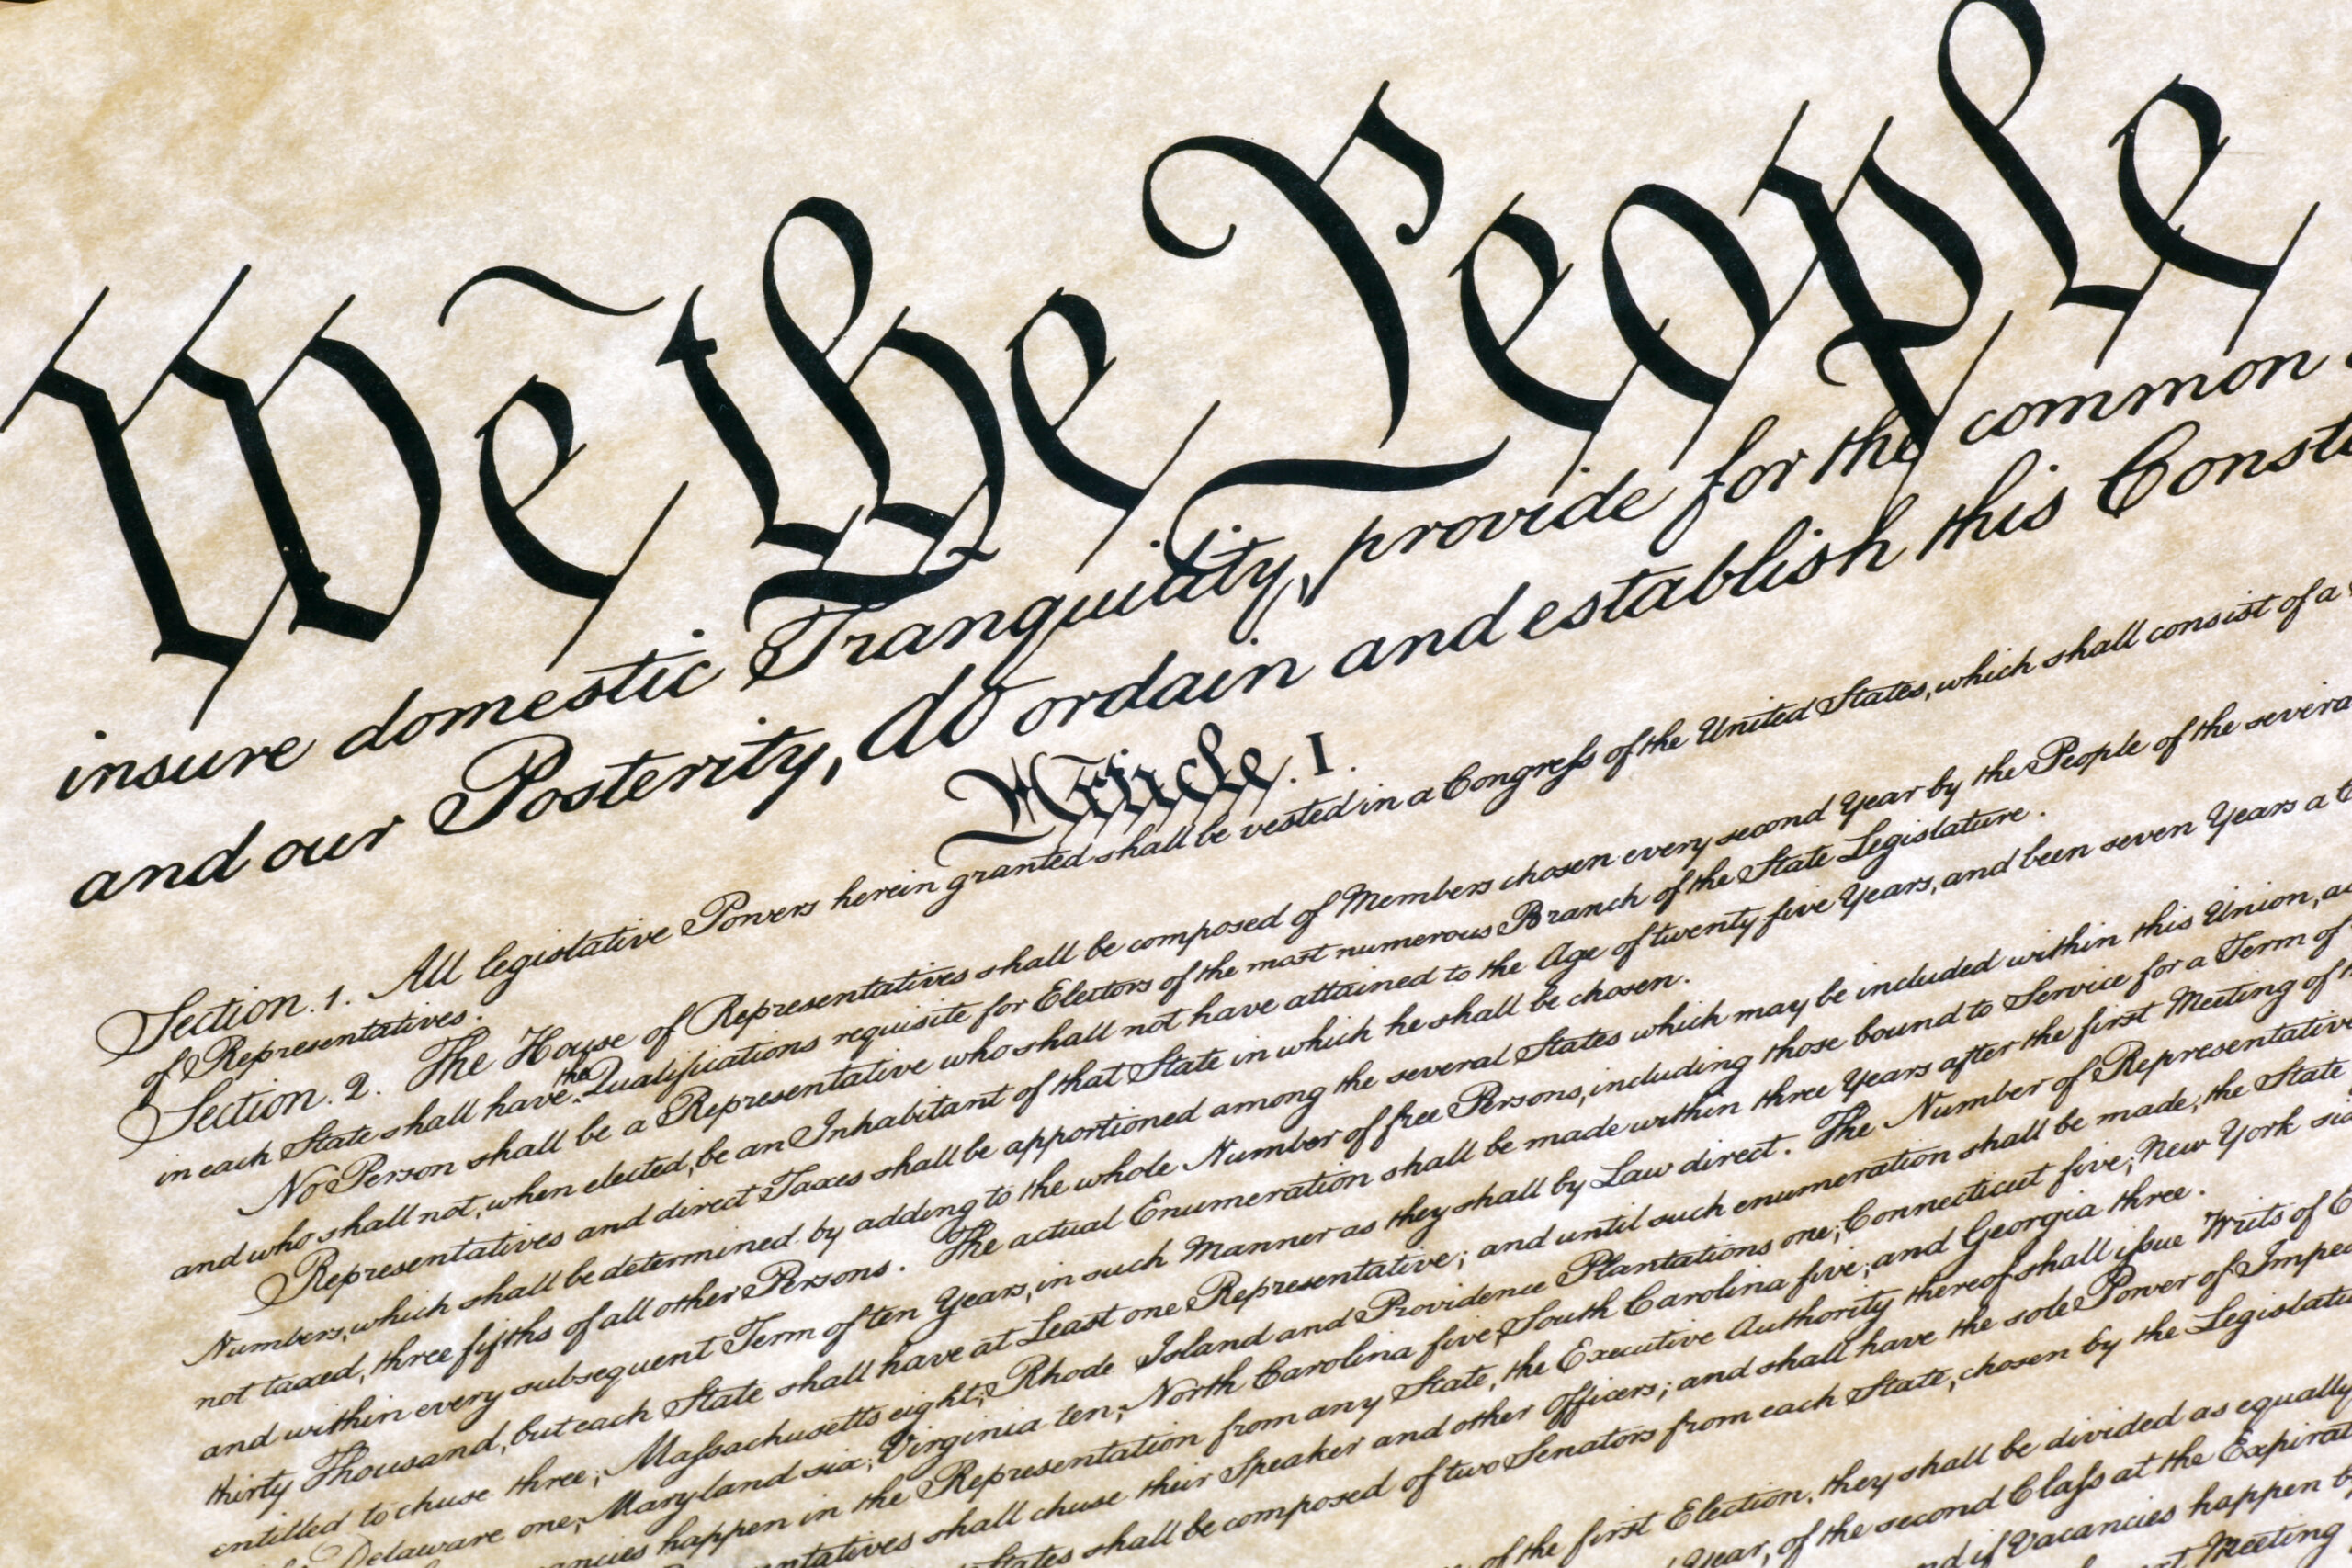 We the People
insure domestic Tranquility, provide for the common
and our Posterity, do ordain and establish this
Article. I.
Section. 1. All legislative Powers herein granted shall be vested in a Congress of the United States, which shall consist of a
of Representatives.
Section. 2. The House of Representatives shall be composed of Members chosen every second Year by the People of the
in each State shall have the Qualifications requisite for Electors of the most numerous Branch of the State Legislature.
No Person shall be a Representative who shall not have attained to the Age of twenty five Years, and been seven Years a
and who shall not, when elected, be an Inhabitant of that State in which he shall be chosen.
Representatives and direct Taxes shall be apportioned among the several States which may be included within this Union,
Numbers, which shall be determined by adding to the whole Number of free Persons, including those bound to Service for a Term of
not taxed, three fifths of all other Persons. The actual Enumeration shall be made within three Years after the first Meeting of
and within every subsequent Term of ten Years, in such Manner as they shall by Law direct. The Number of
thirty Thousand, but each State shall have at Least one Representative; and until such enumeration shall be made, the State
entitled to chuse three, Massachusetts eight, Rhode Island and Providence Plantations one, Connecticut five, New York
Delaware one, Maryland six, Virginia ten, North Carolina five, South Carolina five, and Georgia three.
happen in the Representation from any State, the Executive Authority thereof shall issue Writs of
shall chuse their Speaker and other Officers; and shall have the sole Power of
shall be composed of two Senators from each State, chosen by the
of the first Election, they shall be divided as equally
of the second Class at the
if Vacancies happen
Meeting